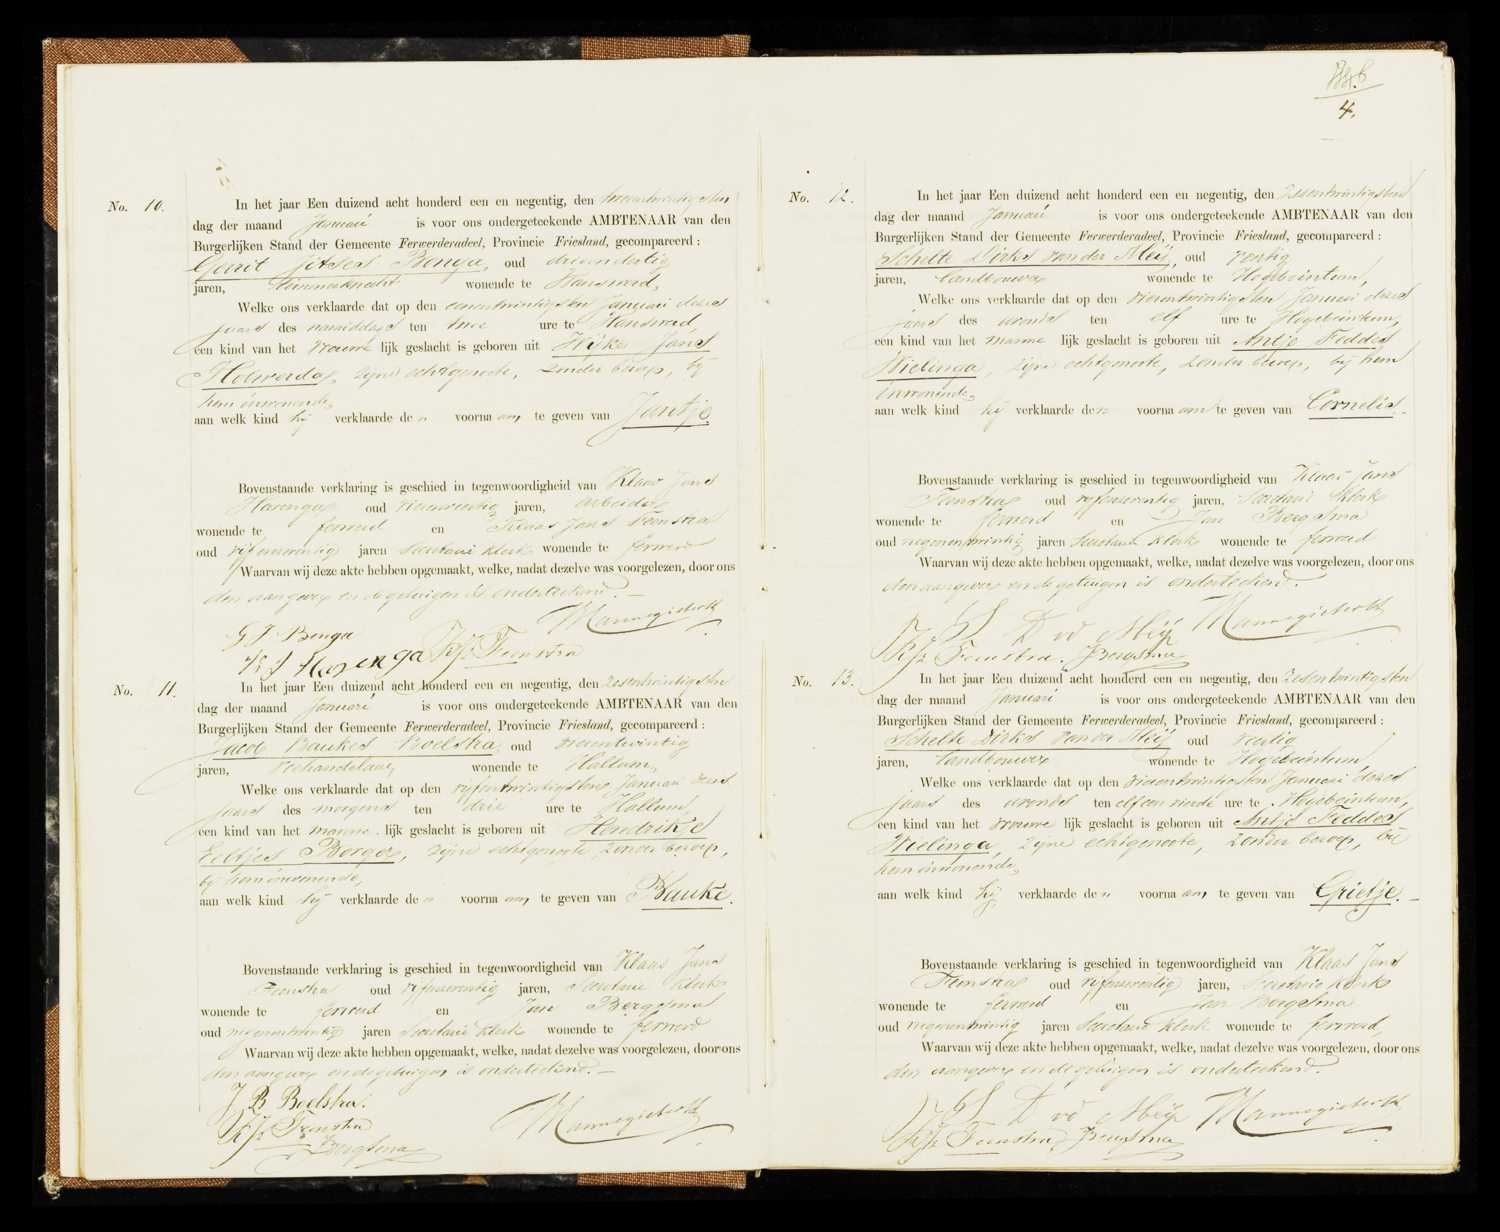 No. 10.
In het jaar Een duizend acht honderd een en negentig, den tweeentwintigsten
dag der maand Januari is voor ons ondergeteekende AMBTENAAR van den
Burgerlijken Stand der Gemeente Ferwerderadeel, Provincie Friesland, gecompareerd:
Gerrit Jitses Benga, oud drieendertig
jaren, Timmerknecht wonende te Hantum,
Welke ons verklaarde dat op den eenentwintigsten Januari dezes
jaars des namiddags ten twee ure te
een kind van het vrouwe lijk geslacht is geboren uit Hijke Jans
Holwerda, zijne echtgenoote, zonder beroep, bij
hem inwonende,
aan welk kind hij verklaarde den voornaam te geven van Jantje.
Bovenstaande verklaring is geschied in tegenwoordigheid van Klaas Jans
Harenga oud jaren, arbeider
wonende te Ferwerd en Klaas Jans Feenstra
oud vijfenveertig jaren Secretarie klerk wonende te Ferwerd
Waarvan wij deze akte hebben opgemaakt, welke, nadat dezelve was voorgelezen, door ons
den aangever en de getuigen is onderteekend.
Mannegieterok
G J Benga
K J Harenga Kjz Feenstra
No. 11.
In het jaar Een duizend acht honderd een en negentig, den zesentwintigsten
dag der maand Januari is voor ons ondergeteekende AMBTENAAR van den
Burgerlijken Stand der Gemeente Ferwerderadeel, Provincie Friesland, gecompareerd:
Jacob Baukes Boelstra, oud vierentwintig
jaren, Veehandelaar, wonende te Hallum,
Welke ons verklaarde dat op den vijfentwintigsten Januari dezes
jaars des morgens ten drie ure te Hallum,
een kind van het manne lijk geslacht is geboren uit Hendrikje
Eeltjes Berger, zijne echtgenoote, zonder beroep,
bij hem inwonende,
aan welk kind hij verklaarde den voornaam te geven van Bauke.
Bovenstaande verklaring is geschied in tegenwoordigheid van Klaas Jans
Feenstra oud vijfenveertig jaren, Secretarie klerk
wonende te Ferwerd en Jan Bergsma
oud negenentwintig jaren Secretarie klerk wonende te Ferwerd
Waarvan wij deze akte hebben opgemaakt, welke, nadat dezelve was voorgelezen, door ons
den aangever en de getuigen is onderteekend.
J B Boelstra.
Kjz Feenstra Mannegieterok
JBergsma
4.
No. 12.
In het jaar Een duizend acht honderd een en negentig, den zesentwintigsten
dag der maand Januari is voor ons ondergeteekende AMBTENAAR van den
Burgerlijken Stand der Gemeente Ferwerderadeel, Provincie Friesland, gecompareerd:
Schelte Dirks van der Meij, oud veertig
jaren, Landbouwer wonende te Hogebeintum,
Welke ons verklaarde dat op den vierentwintigsten Januari dezes
jaars des avonds ten elf ure te Hogebeintum,
een kind van het manne lijk geslacht is geboren uit Antje Feddes
Wielinga, zijne echtgenoote, zonder beroep, bij hem
inwonende,
aan welk kind hij verklaarde den voornaam te geven van Cornelis.
Bovenstaande verklaring is geschied in tegenwoordigheid van Klaas Jans
Feenstra oud vijfenveertig jaren, Secretarie klerk
wonende te Ferwerd en Jan Bergsma
oud negenentwintig jaren Secretarie klerk wonende te Ferwerd
Waarvan wij deze akte hebben opgemaakt, welke, nadat dezelve was voorgelezen, door ons
den aangever en de getuigen is onderteekend.
S D vd Meij Mannegieterok
Kjz Feenstra. JBergsma
No. 13.
In het jaar Een duizend acht honderd een en negentig, den zesentwintigsten
dag der maand Januari is voor ons ondergeteekende AMBTENAAR van den
Burgerlijken Stand der Gemeente Ferwerderadeel, Provincie Friesland, gecompareerd:
Schelte Dirks van der Meij oud veertig
jaren, Landbouwer wonende te Hogebeintum,
Welke ons verklaarde dat op den vierentwintigsten Januari dezes
jaars des avonds ten elf een vierde ure te Hogebeintum,
een kind van het vrouwe lijk geslacht is geboren uit Antje Feddes
Wielinga, zijne echtgenoote, zonder beroep, bij
hem inwonende,
aan welk kind hij verklaarde den voornaam te geven van Grietje.
Bovenstaande verklaring is geschied in tegenwoordigheid van Klaas Jans
Feenstra oud vijfenveertig jaren, Secretarie klerk
wonende te Ferwerd en Jan Bergsma
oud negenentwintig jaren Secretarie klerk wonende te Ferwerd
Waarvan wij deze akte hebben opgemaakt, welke, nadat dezelve was voorgelezen, door ons
den aangever en de getuigen is onderteekend.
S D vd Meij Mannegieterok
Kjz Feenstra JBergsma